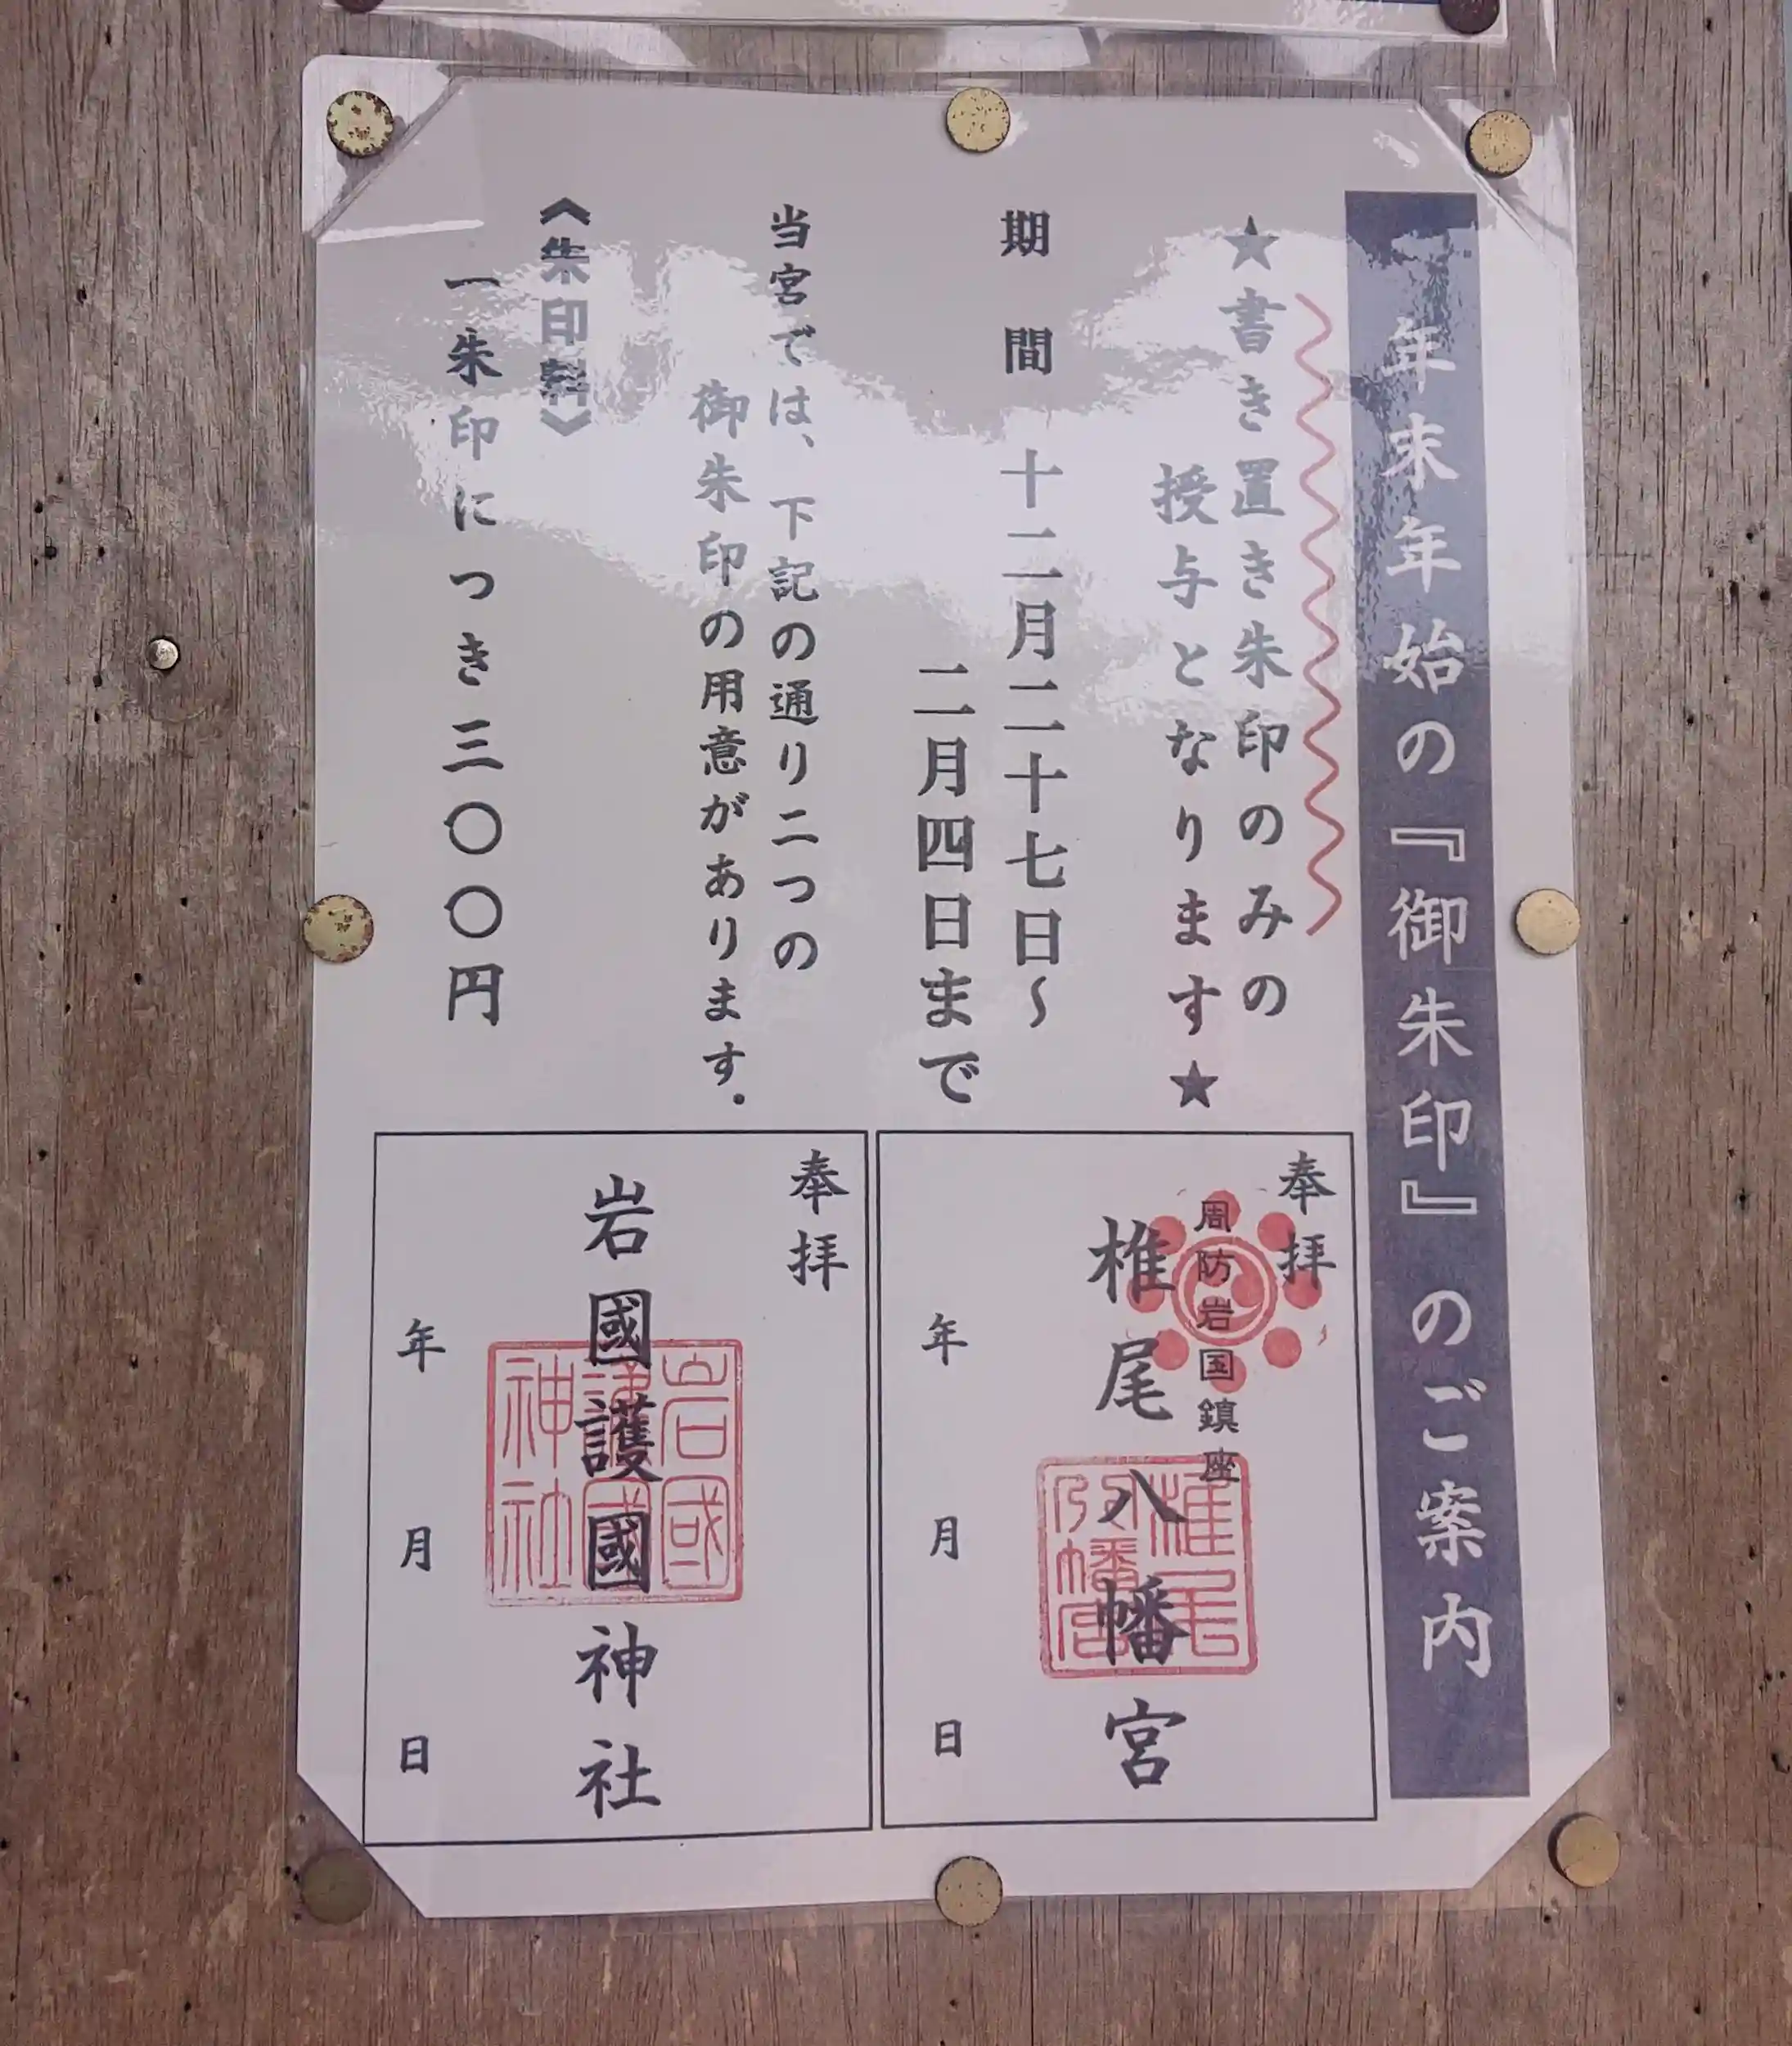 年末年始の『御朱印』のご案内
★書き置き朱印のみの
授与となります★
期間 十二月二十七日～
二月四日まで
当宮では、下記の通り二つの
御朱印の用意があります.
《朱印料》
一朱印につき三〇〇円
奉拝
周防岩国鎮座
椎尾八幡宮
椎尾八幡宮
年 月 日
奉拝
岩國護國神社
岩國護國神社
年 月 日